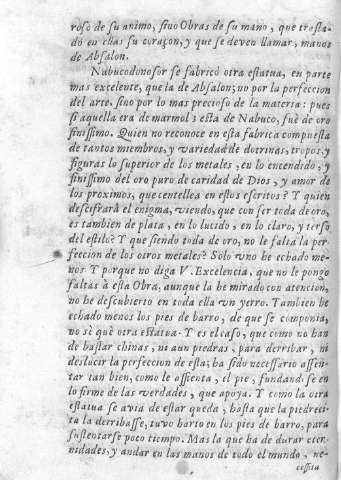 roso de su animo, sino Obras de su mano, que trasla-
dó en ellas su coraçon, y que se deven llamar, manos
de Absalon.
Nabucodonosor se fabricò otra estatua, en parte
mas excelente, que la de Absalon; no por la perfeccion
del arte, sino por lo mas precioso de la materia: pues
si aquella era de marmol; esta de Nabuco, fuè de oro
finissimo. Quien no reconoce en esta fabrica compuesta
de tantos miembros, y variedad de dotrinas, tropos, y
figuras lo superior de los metales, en lo encendido, y
finissimo del oro puro de caridad de Dios, y amor de
los proximos, que centellea en estos escritos? Y quien
descifrarà el enigma, viendo, que con ser toda de oro,
es tambien de plata, en lo lucido, en lo claro, y terso
del estilo? Y que siendo toda de oro, no le falta la per-
feccion de los otros metales? Solo uno he echado me-
nos. Y porque no diga V. Excelencia, que no le pongo
faltas à esta Obra, aunque la he mirado con atencion,
no he descubierto en toda ella un yerro. Tambien he
echado menos los pies de barro, de que se componia,
no sè què otra estatua. Y es el caso, que como no han
de bastar chinas, ni aun piedras, para derribar, ni
deslucir la perfeccion de esta; ha sido necessario assen-
tar tan bien, como le assienta, el pie, fundandose en
lo firme de las verdades, que apoya. Y como la otra
estatua se avia de estar queda, hasta que la piedreci-
ta la derribasse, tuvo harto en los pies de barro, para
sustentarse poco tiempo. Mas la que ha de durar eter-
nidades, y andar en las manos de todo el mundo, ne-
cessita